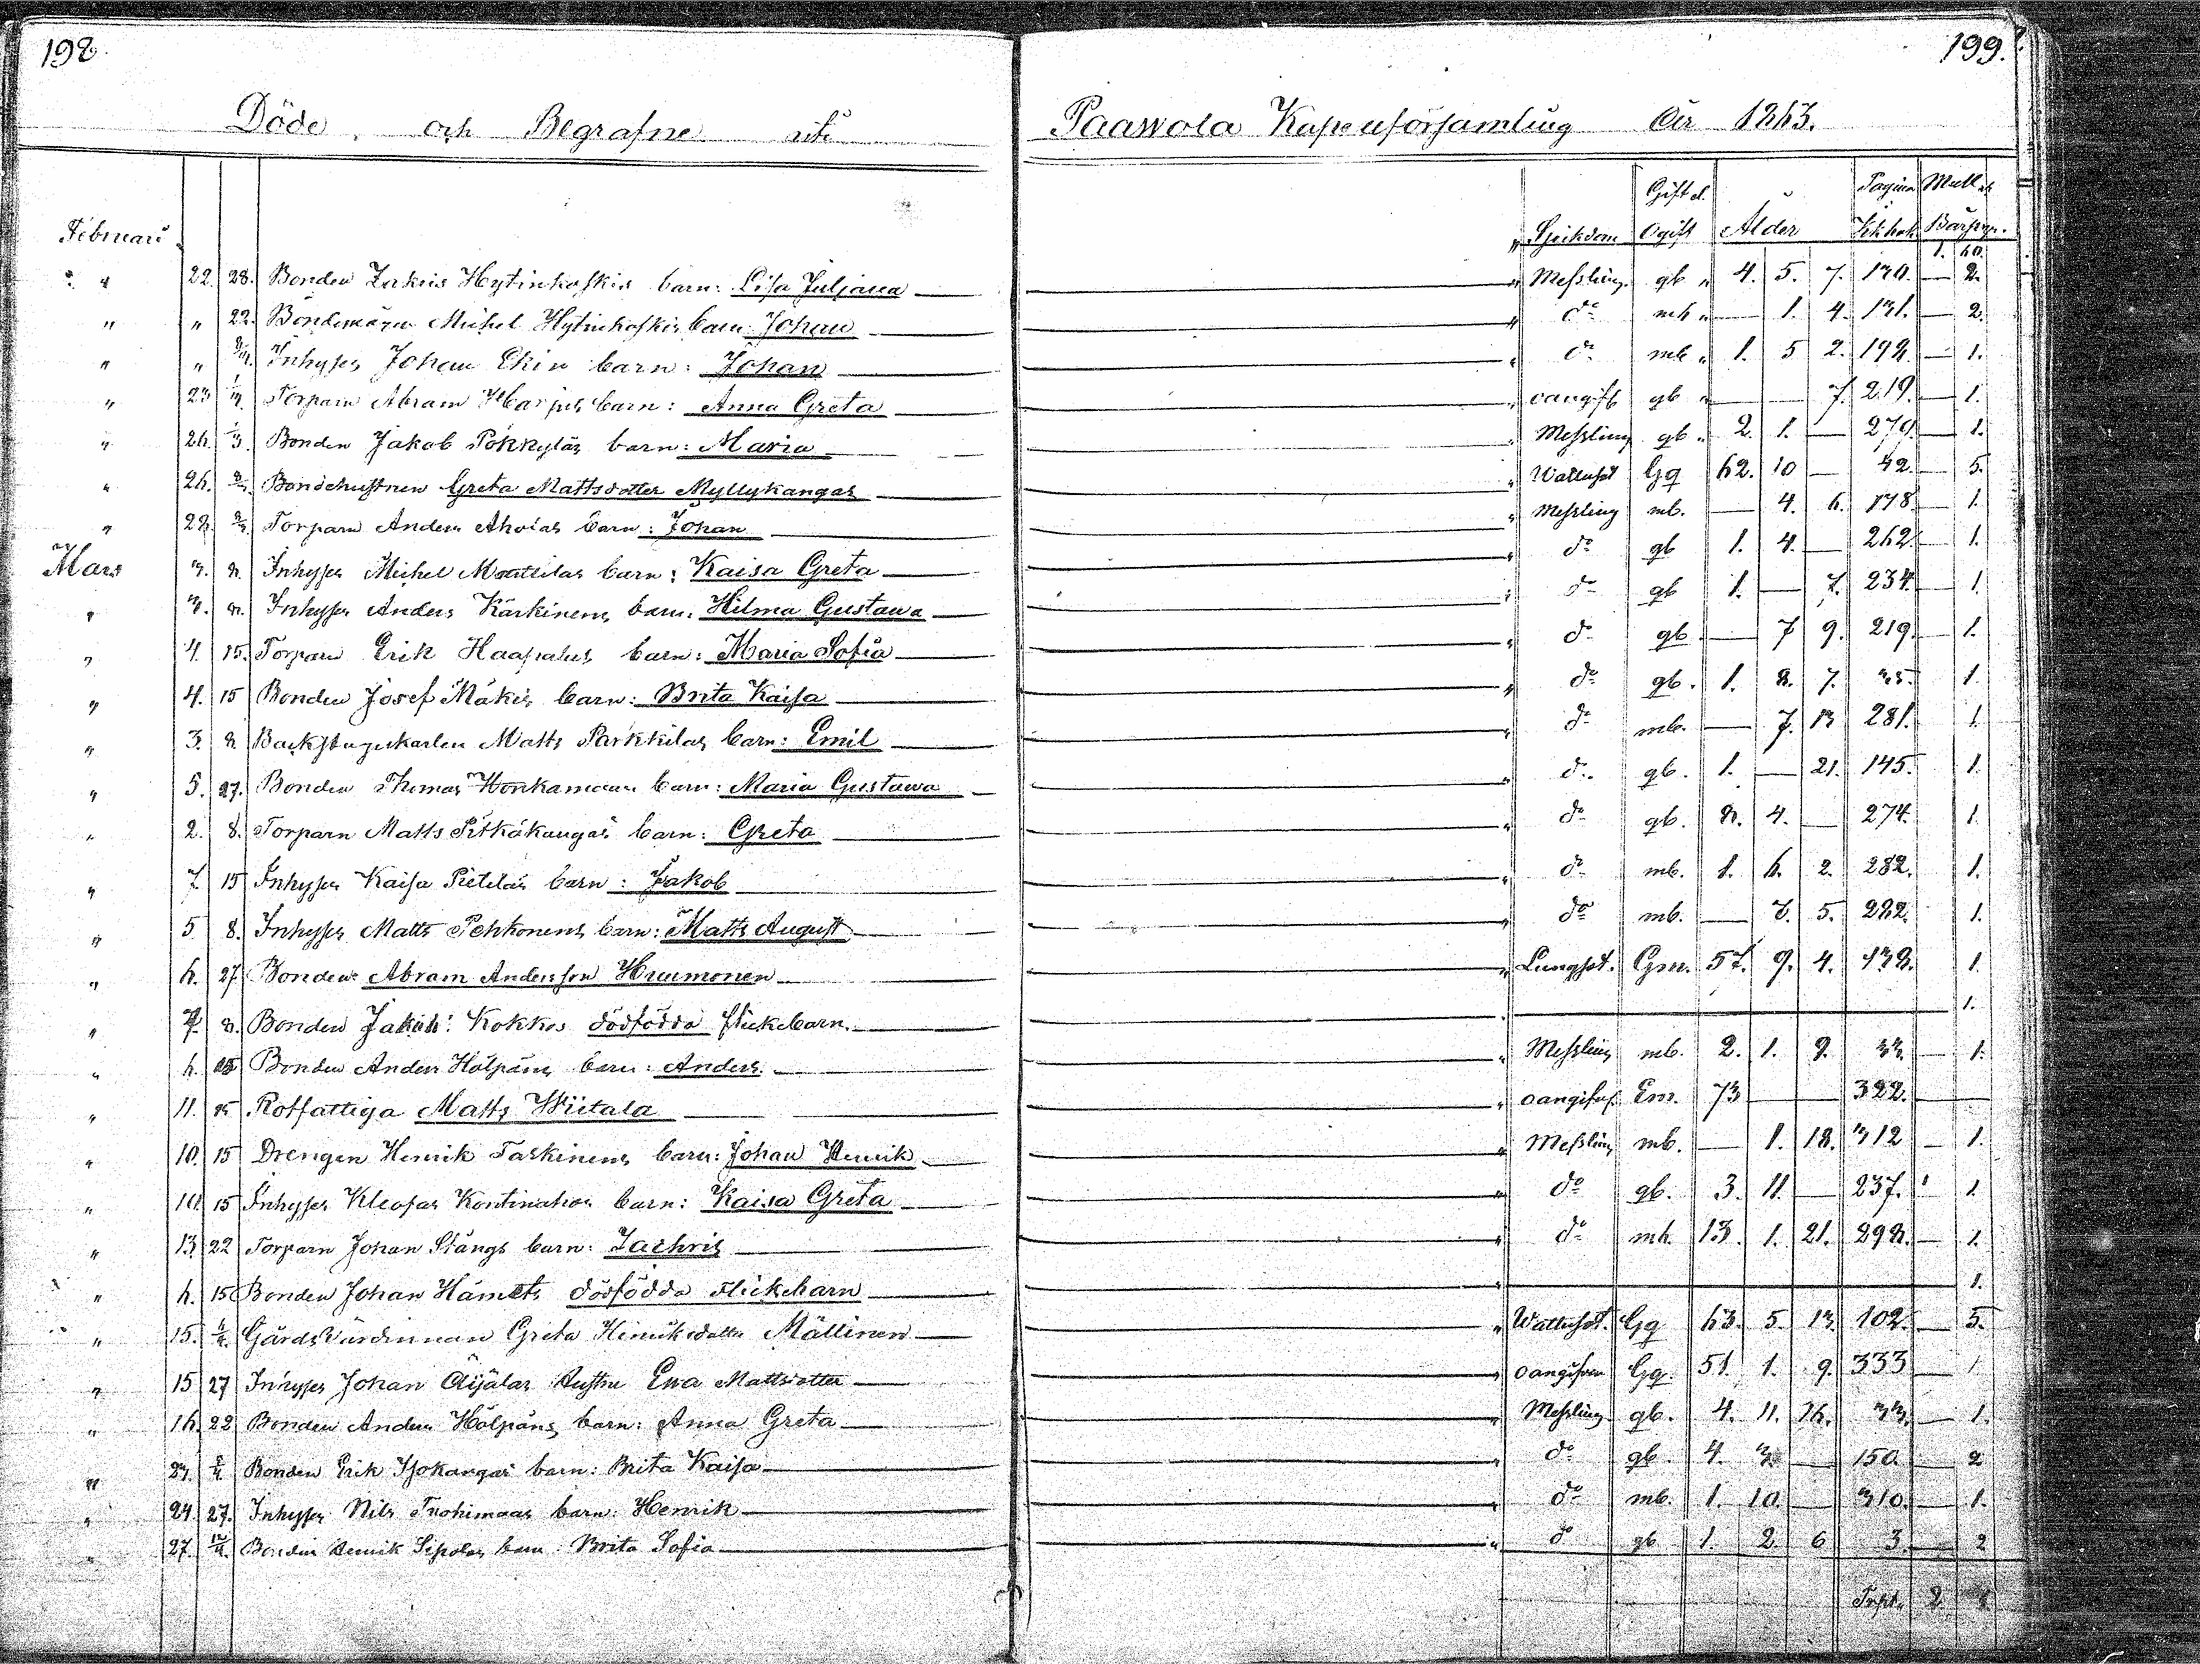 198. 199.
Döde och Begrafne uti Paawola Kapellförsamling År 1863.
Februari Sjukdom Gift el. Ogift Ålder Pagina Mull
" 22. 28. Bonden Zakris Hytinkoskis barn: Lisa Juljana " Messling gb " 4. 5. 7. 2.
" " 22. Michel Hytinkoskis barn: Johan " do mb " — 1. 4. 131. — 2.
" " Inhyses Johan Ekin barn: Johan " do mb " 1. 5 2. — 1.
" 23 Torparn Abram Harjus barn: Anna Greta " oangift gb " — — 7. 219. — 1.
" 26. 1/3. Bonden Jakob Pokkyläs barn: Maria " Messling gb " 2. 1. — 279. — 1.
" 26. Bondehustrun Greta Mattsdotter Myllykangas " Wattusot Gq 62. 10 — 42. — 5.
" 28. Torparn Anders Aholas barn: Johan " Messling mb. — 4. 6. 178. — 1.
Mars 3. 8. Inhyses Michel Mattilas barn: Kaisa Greta " do gb 1. 4. — 262. — 1.
" 3. 8. Inhyses Anders Kärkinens barn: Hilma Gustawa " do gb 1. — 7. 234. — 1.
" 4. 15. Torparn Erik Haapalas barn: Maria Sofia " do gb — 7 9. 219. — 1.
" 4. 15 Bonden Josef Mäkis barn: Brita Kaisa " do gb. 1. 8. 7. 35. 1.
" 3. 8. Backstugukarlen Matts Parkkilas barn: Emil " do mb. — 7. 13 281. 1.
" 5. 27. Bonden Thomas Honkamaan barn: Maria Gustawa " do gb. 1. — 21. 145. 1.
" 2. 8. Torparn Matts Pitkäkangas barn: Greta " do gb. 8. 4. — 274. 1.
" 7 15 Inhyses Kaisa Pietiläs barn: Jakob " do mb. 1. 6. 2. 282. 1.
" 5 8. Inhyses Matts Pehkonens barn: Matts August " do mb. — 7. 5. 282. 1.
" 6. 27 Bonden Abram Andersson Huumonen " Lungsot. Gm. 57. 9. 4. 138. 1.
" 7. 8. Bonden Jakob Kokkos dödfödda flickebarn. 1.
" 6. 15 Bonden Anders Hölpäns barn: Anders. " Messling mb. 2. 1. 9. 33. — 1.
" 11. 15 Rotfattiga Matts Wiitala " oangifv. Em. 73 — — 322. —
" 10. 15 Drengen Henrik Taskinens barn: Johan Henrik " Messling mb. — 1. 18. 312 — 1.
" 10. 15 Inhyses Kleofas Kontinahos barn: Kaisa Greta " do gb. 3. 11. — 237. 1.
" 13. 22 Torparn Johan Stångs barn: Zachris " do mb. 13. 1. 21. 298. — 1.
" 6. 15 Bonden Johan Hämets dödfödda Flickebarn " 1.
" 15. Gårdsvärdinnan Greta Henriksdotter Mällinen " Wattusot. Gq 63. 5. 13. 102. — 5.
" 15 27 Inhyses Johan Äijälas hustru Ewa Mattsdotter " oangifven Gq. 51. 1. 9. 333 — 1
" 16. 22 Bonden Anders Hölpäns barn: Anna Greta " Messling gb. 4. 11. 16. 33. — 1.
" 23. Bonden Erik Isokangas barn: Brita Kaisa " do gb. 4. 3 — 150. — 2
" 24. 27. Inhyses Nils Tuohimaas barn: Henrik " do mb. 1. 10. — 310. — 1.
" 27. Bonden Henrik Sipolas barn: Brita Sofia " do gb 1. 2. 6 3. — 2
Trpt. 2